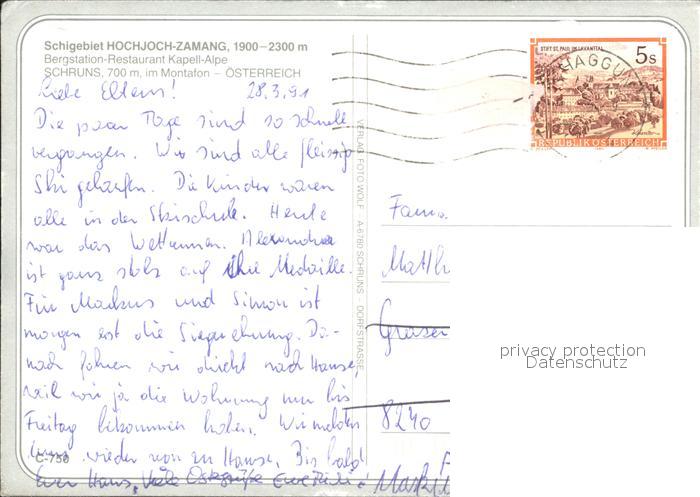 Schigebiet HOCHJOCH-ZAMANG, 1900–2300 m
Bergstation-Restaurant Kapell-Alpe
SCHRUNS, 700 m, im Montafon – ÖSTERREICH
Liebe Eltern! 28.3.91
Die paar Tage sind so schnell
vergangen. Wir sind alle fleissig
Ski gelaufen. Die Kinder waren
alle in der Skischule. Heute
war das Wettrennen. Alexandra
ist ganz stolz auf ihre Medaille.
Für Markus und Simon ist
morgen erst die Siegerehrung. Da-
nach fahren wir direkt nach Hause,
weil wir ja die Wohnung nur bis
Freitag bekommen haben. Wir melden
uns wieder von zu Hause. Bis bald!
Euer Hans, Viele Ostergrüße Eure
C-750
VERLAG FOTO WOLF A-6780 SCHRUNS - DORFSTRASSE
STIFT ST. PAUL IM LAVANTTAL
5s
REPUBLIK ÖSTERREICH
Fam.
Matth
8240
Markt
privacy protection
Datenschutz